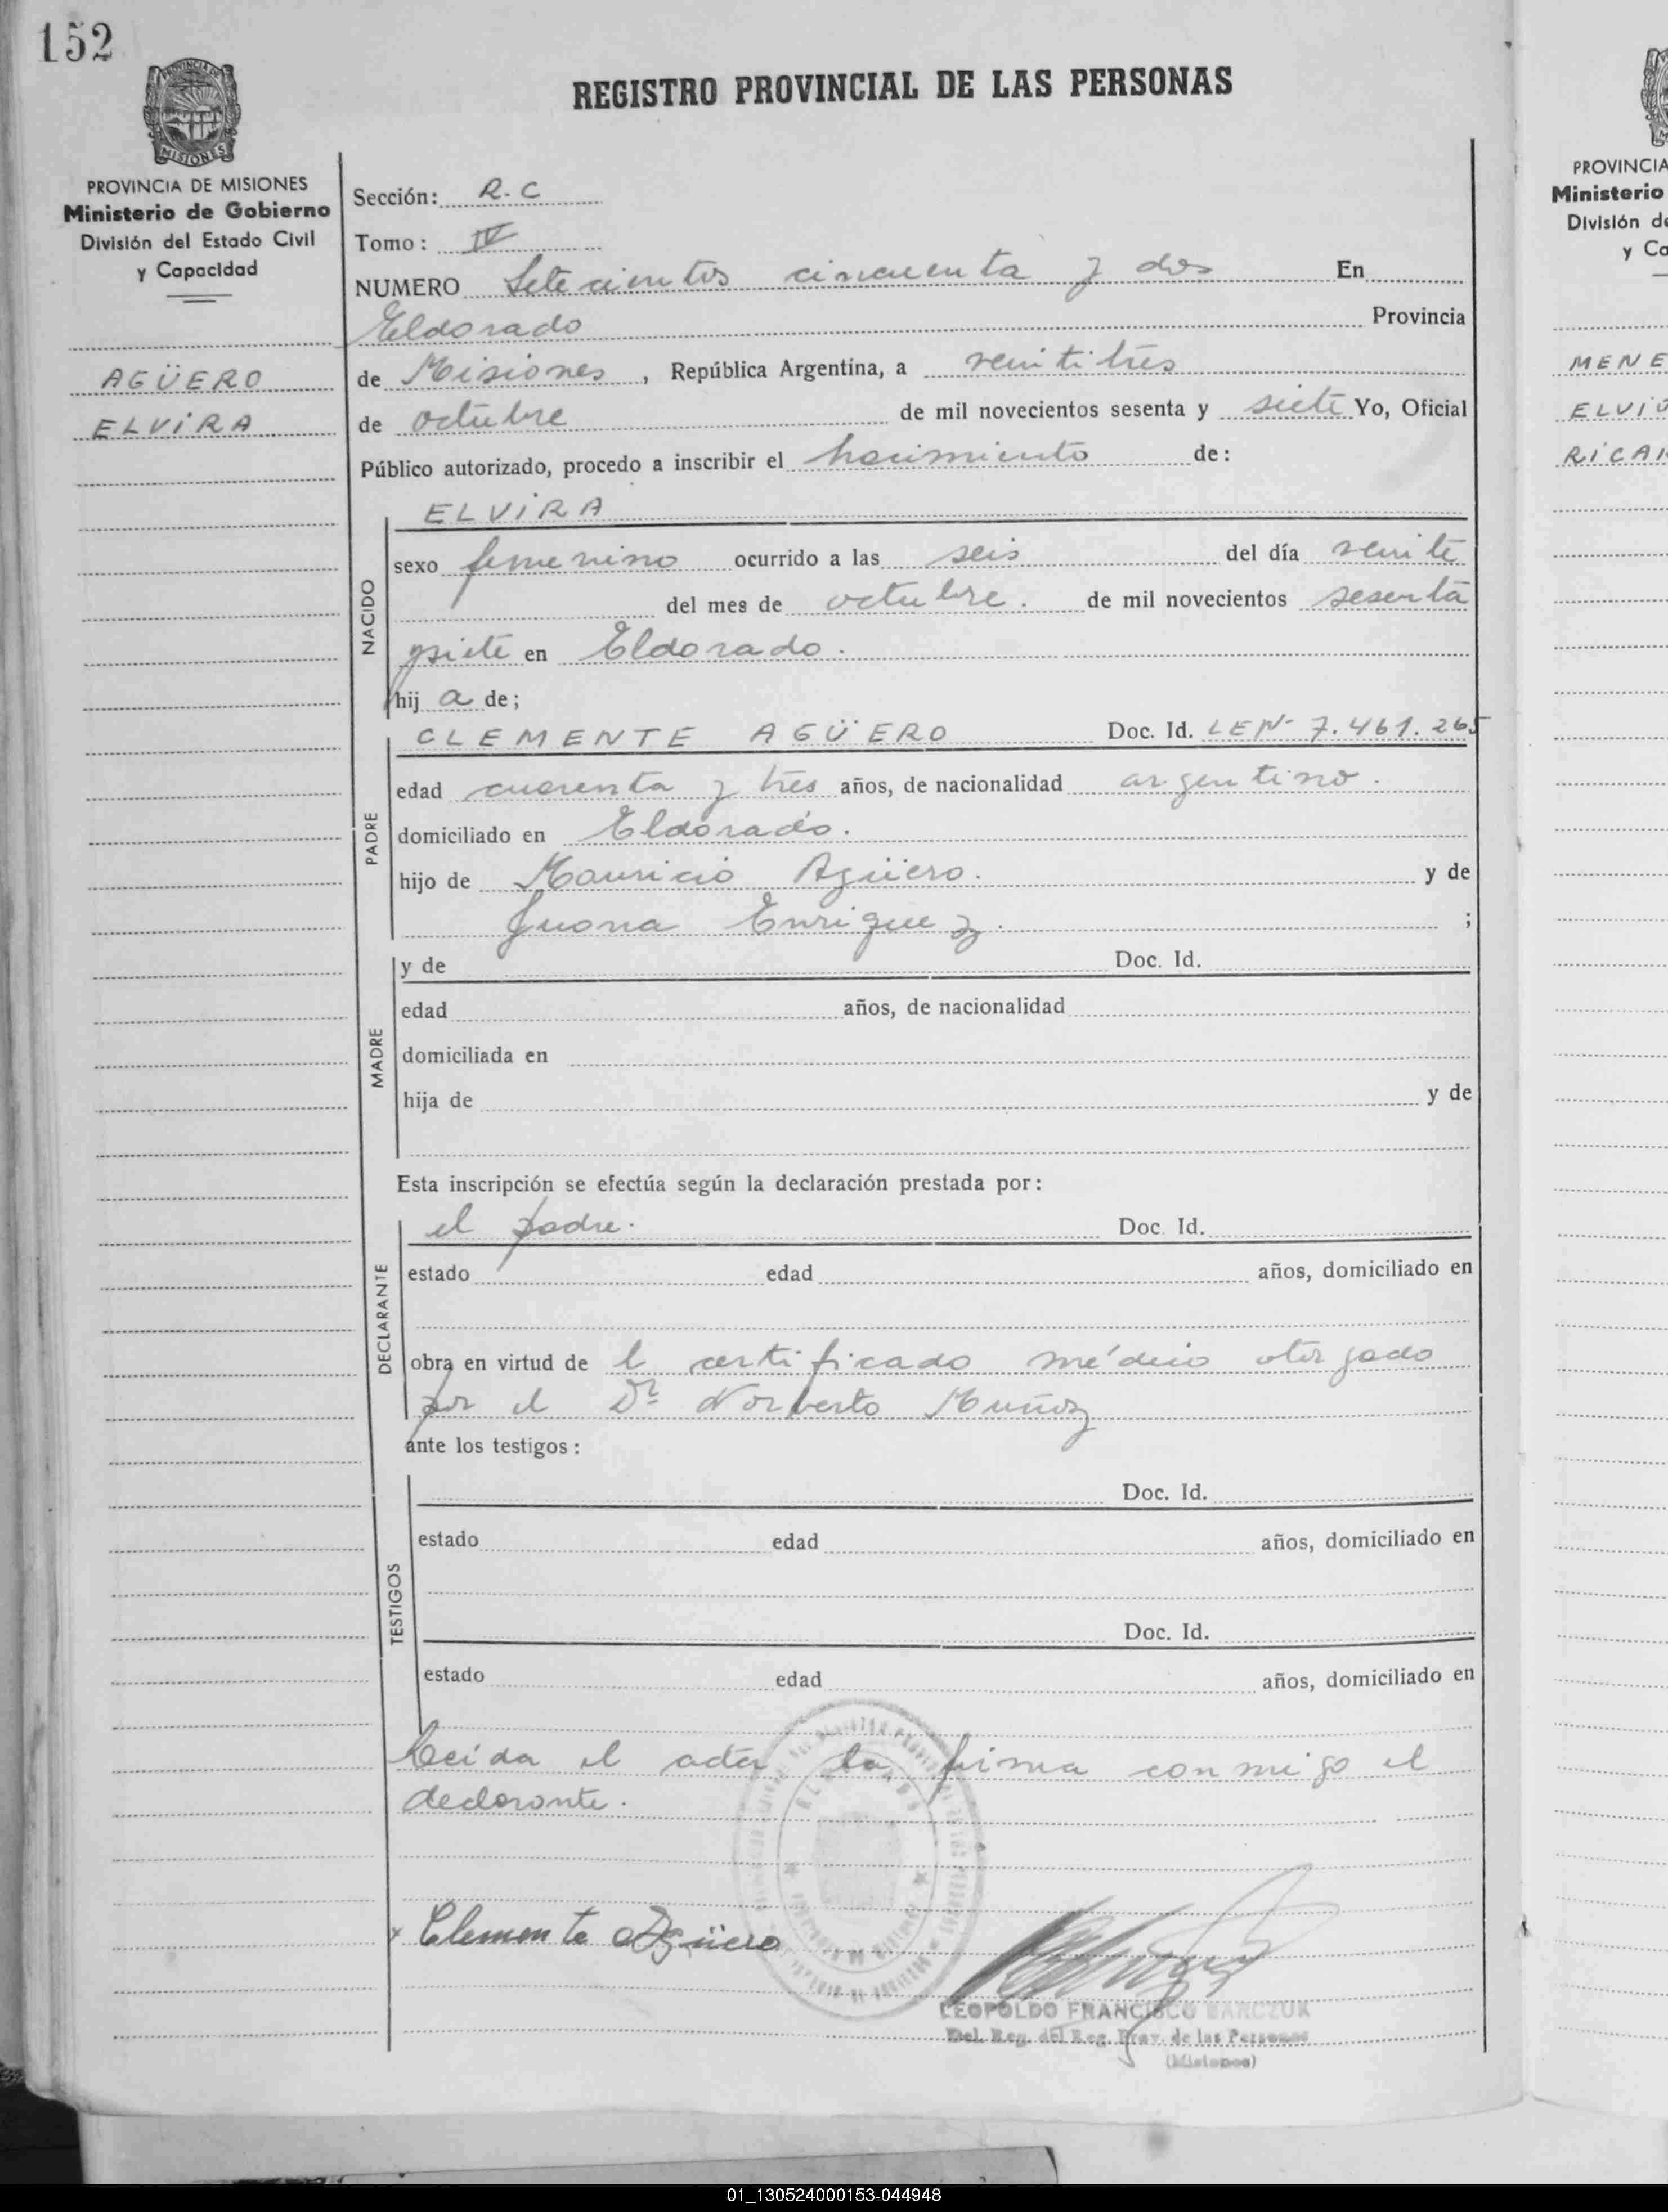 152
REGISTRO PROVINCIAL DE LAS PERSONAS
MISIONES
PROVINCIA DE MISIONES
Ministerio de Gobierno
División del Estado Civil
y Capacidad
AGÜERO
ELVIRA
Sección: R.C
Tomo: IV
NUMERO Setecientos cincuenta y dos En
Eldorado Provincia
de Misiones, República Argentina, a veintitrés
de octubre de mil novecientos sesenta y siete Yo, Oficial
Público autorizado, procedo a inscribir el nacimiento de:
NACIDO
ELVIRA
sexo femenino ocurrido a las seis del día veinte
del mes de octubre. de mil novecientos sesenta
y siete en Eldorado.
hij a de;
PADRE
CLEMENTE AGÜERO Doc. Id. LENº 7.461.265
edad cuarenta y tres años, de nacionalidad argentino.
domiciliado en Eldorado.
hijo de Mauricio Agüero. y de
Juana Enriquez. ;
MADRE
y de Doc. Id.
edad años, de nacionalidad
domiciliada en
hija de y de
Esta inscripción se efectúa según la declaración prestada por:
DECLARANTE
el padre. Doc. Id.
estado edad años, domiciliado en
obra en virtud de l certificado médico otorgado
por el Dr Norberto Muñoz
ante los testigos:
TESTIGOS
Doc. Id.
estado edad años, domiciliado en
Doc. Id.
estado edad años, domiciliado en
Leída el acta la firma conmigo el
declarante.
x Clemente Agüero
LEOPOLDO FRANCISCO
Del. Reg. del Reg. Prov. de las Personas
(Misiones)
PROVINCIA
Ministerio
División de
y Ca
MENE
ELVIO
RICAR
01_130524000153-044948